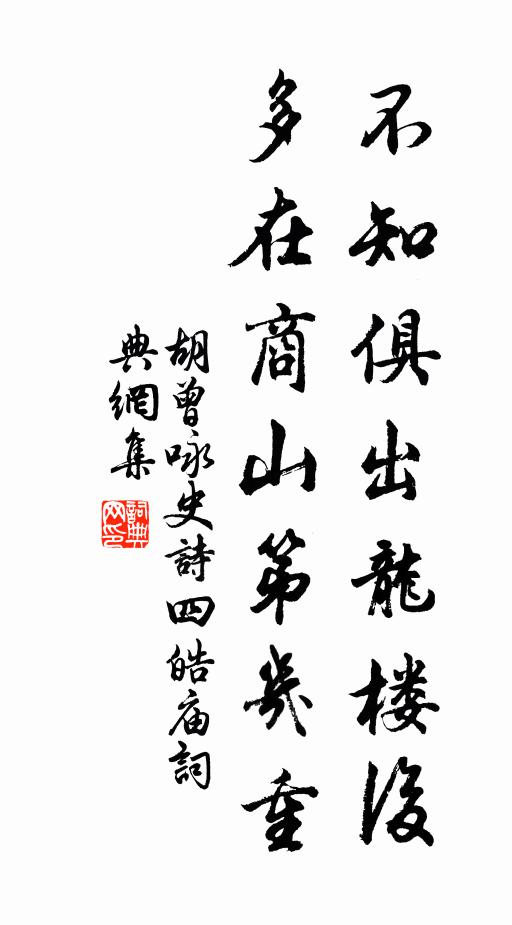 不知俱出龍楼後
多在商山第幾重
胡曾咏史詩四皓庙詞
典網集
詞典网印